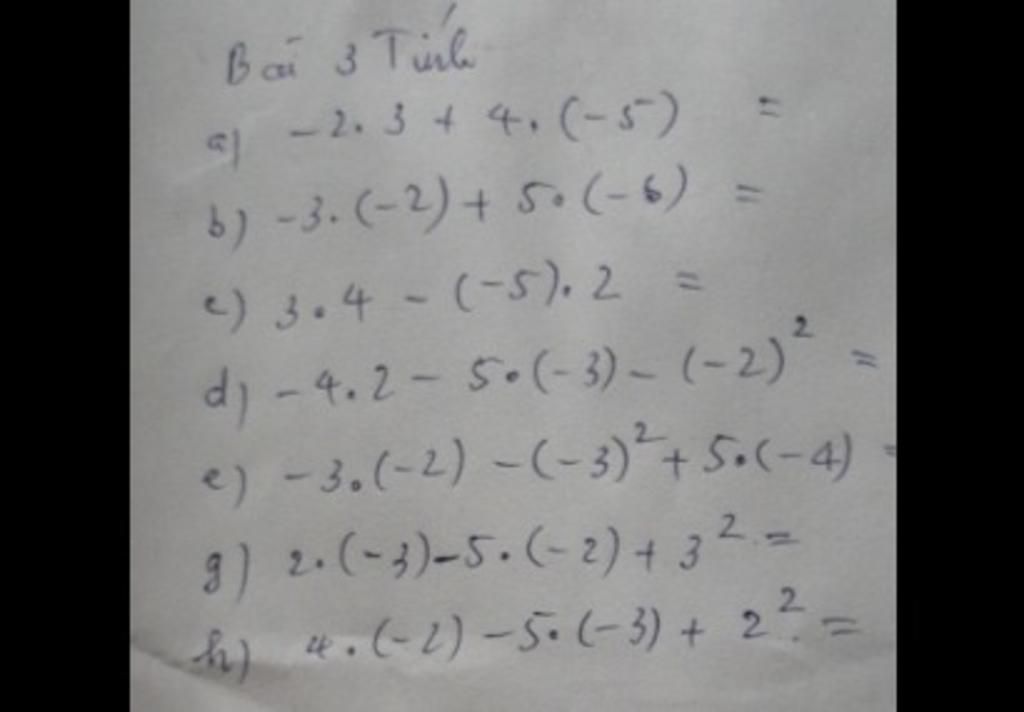 Bài 3 Tính
a) -2.3 + 4.(-5) =
b) -3.(-2) + 5.(-6) =
c) 3.4 - (-5).2 =
d) -4.2 - 5.(-3) - (-2)² =
e) -3.(-2) - (-3)² + 5.(-4) =
g) 2.(-3) - 5.(-2) + 3² =
h) 4.(-2) - 5.(-3) + 2² =